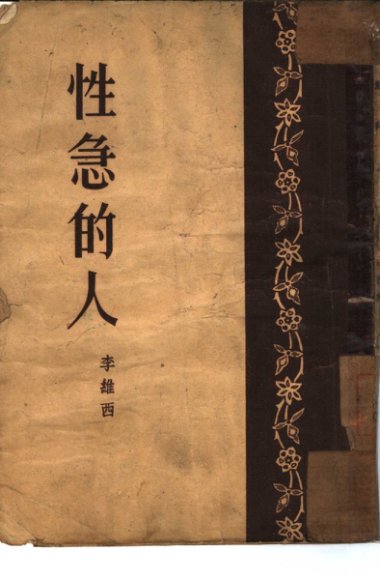 性急的人
李維西